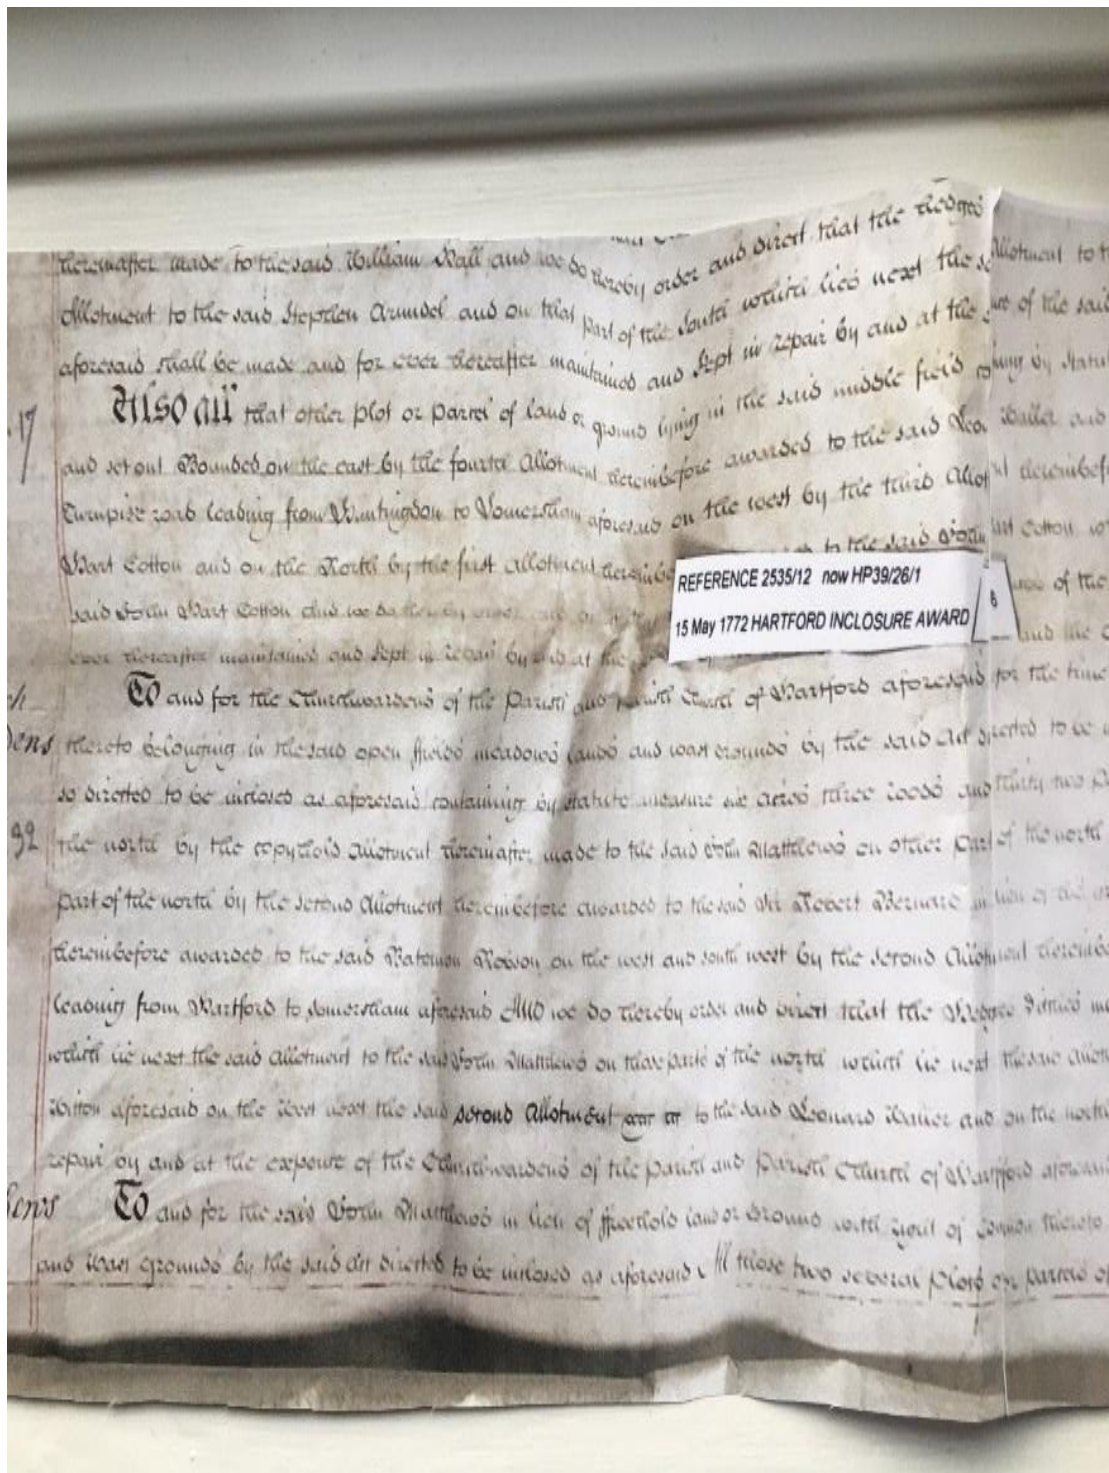 hereinafter made to the said William Wall and we do hereby order and direct that the Hedges
Allotment to the said Stephen Arundel and on that part of the South which lies next the Allotment to
aforesaid shall be made and for ever hereafter maintained and kept in repair by and at the of the said
.17 Also all that other plot or parcel of land or ground lying in the said middle field by
and set out Bounded on the east by the fourth Allotment hereinbefore awarded to the said Waller and
Turnpike road leading from Huntingdon to Somersham aforesaid on the west by the third Allot
Hart Cotton and on the North by the first Allotment to the said John Hart Cotton
said John Hart Cotton and we do hereby of the
ever hereafter maintained and kept in repair by and at the and the
To and for the Churchwardens of the Parish and Parish Church of Hartford aforesaid for the time
thereto belonging in the said open ffields meadows lands and wast grounds by the said Act directed to be
so directed to be inclosed as aforesaid containing by statute measure six acres three roods and thirty two
92 the north by the copyhold Allotment hereinafter made to the said John Matthews on other part of the north
part of the north by the second Allotment hereinbefore awarded to the said Sir Robert Bernard in lieu of
hereinbefore awarded to the said Bateman Robson on the west and south west by the second Allotment
leading from Hartford to Somersham aforesaid And we do hereby order and direct that the Hedges
which lie next the said Allotment to the said John Matthews on that part of the north which lie next the said
Witton aforesaid on the West next the said second Allotment to the said Leonard Waller and on the
repair by and at the expense of the Churchwardens of the Parish and Parish Church of Hartford
To and for the said John Matthews in lieu of ffreehold land or Ground with right of Common thereto
and Wast grounds by the said Act directed to be inclosed as aforesaid All those two several plots or parcels
REFERENCE 2535/12 now HP39/26/1
15 May 1772 HARTFORD INCLOSURE AWARD
6